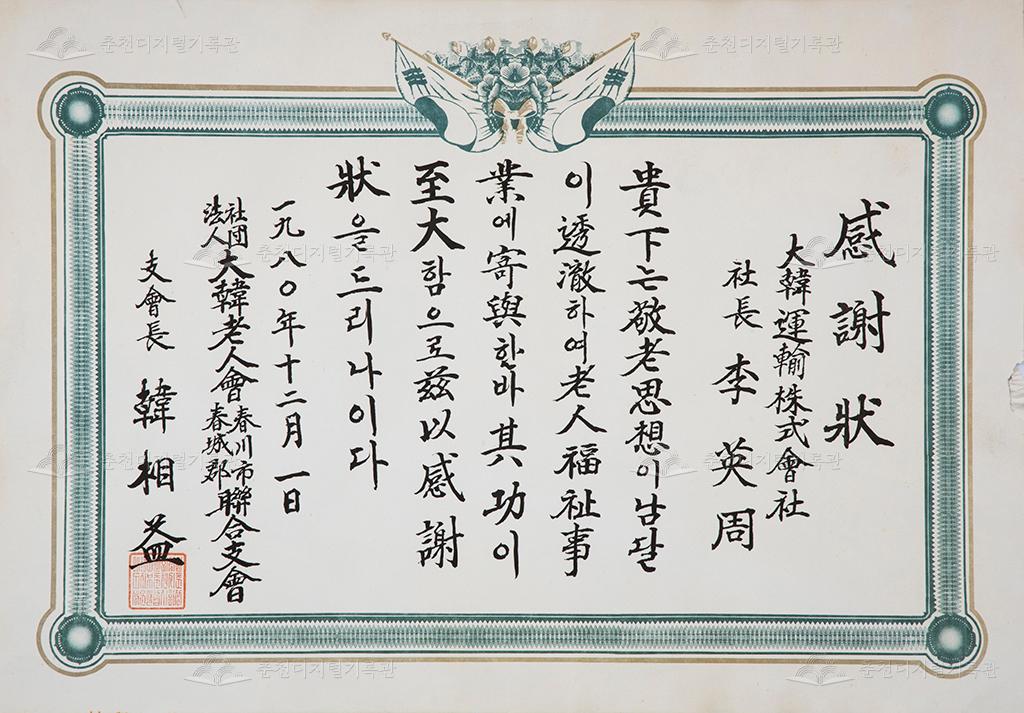 感謝狀
大韓運輸株式會社
社長 李英周
貴下는敬老思想이남달
이透澈하여老人福祉事
業에寄與한바其功이
至大함으로玆以感謝
狀을드리나이다
一九八〇年十二月一日
社団法人大韓老人會春川市春城郡聯合支會
支會長 韓相益
춘천디지털기록관
춘천디지털기록관
춘천디지털기록관
춘천디지털기록관
춘천디지털기록관
춘천디지털기록관
춘천디지털기록관
춘천디지털기록관